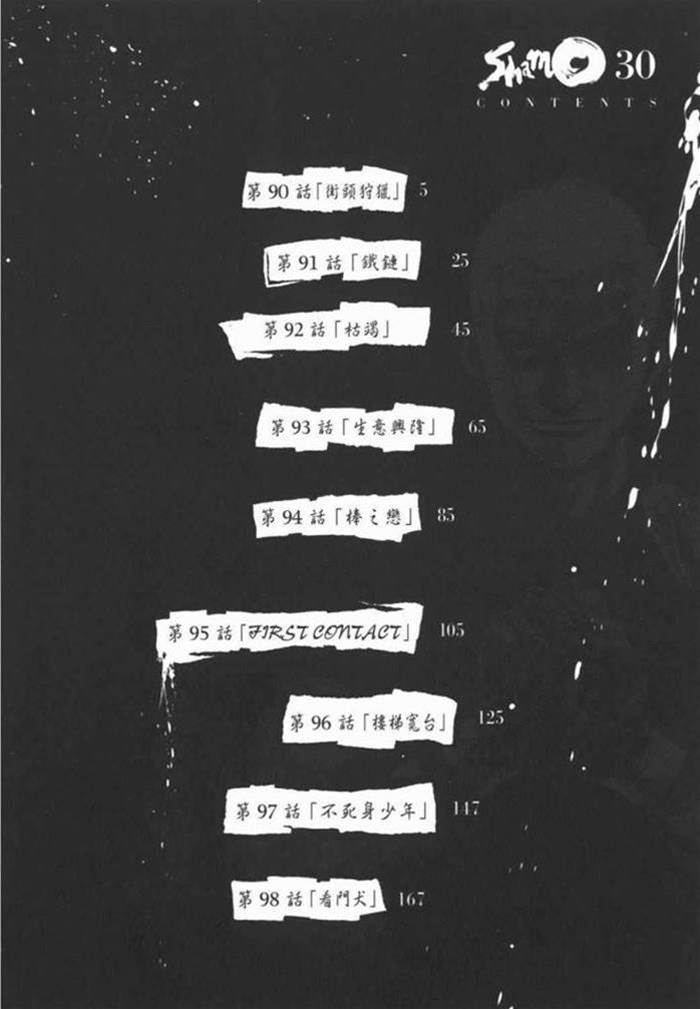 Shamo 30
CONTENTS
第90話「街頭狩獵」 5
第91話「鐵鏈」 25
第92話「枯竭」 45
第93話「生意興隆」 65
第94話「棒之戀」 85
第95話「FIRST CONTACT」 105
第96話「樓梯寬台」 125
第97話「不死身少年」 147
第98話「看門犬」 167